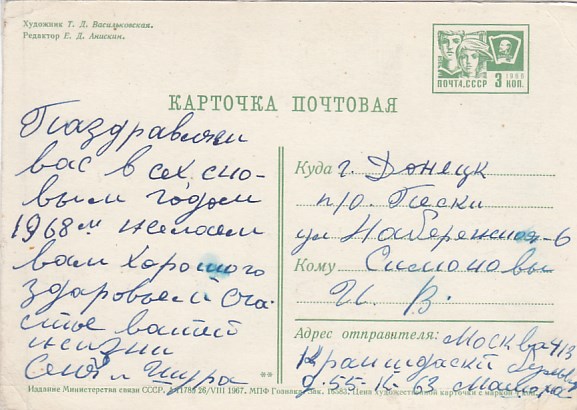 Художник Т. Д. Васильковская.
Редактор Е. Д. Анискин.
ПОЧТА СССР 3 КОП.
1966
КАРТОЧКА ПОЧТОВАЯ
Паздравляю
вас в сех сно-
вым годом
1968 м желаем
вам хорошого
здаровья и сча-
стье вашей
жизни
Сеня и Шура
Куда г. Донецк
п/о Пески
ул Набережная-6
Кому Симоновы
И. В.
Адрес отправителя: Москва
д-55-К-63
**
Издание Министерства связи СССР. 26/VIII 1967. МПФ Гознака. Зак. Цена художественной карточки с маркой